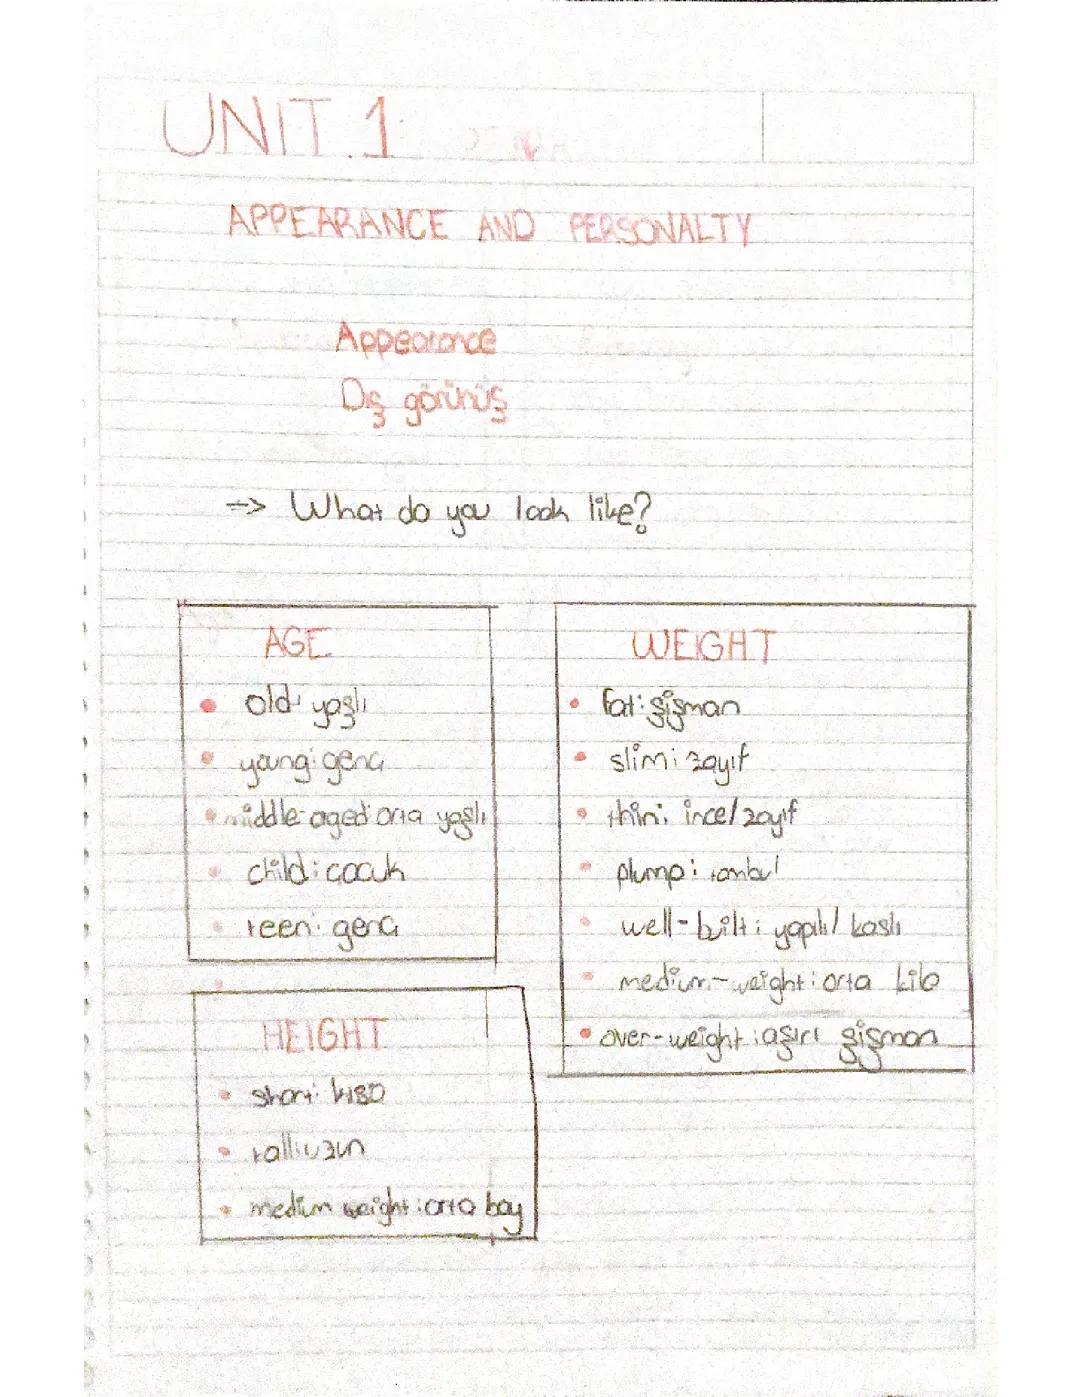 UNIT.1
APPEARANCE AND PERSONALTY
Appearance
Dış görünüş
=> What do you look like?
AGE
• old: yaşlı
• young: genç
• middle-aged: orta yaşlı
• child: çocuk
• teen: genç
HEIGHT
• short: kısa
• tall: uzun
• medium weight: orta boy
WEIGHT
• fat: şişman
• slim: zayıf
• thin: ince/zayıf
• plump: tombul
• well-built: yapılı/kaslı
• medium-weight: orta kilo
• over-weight: aşırı şişman